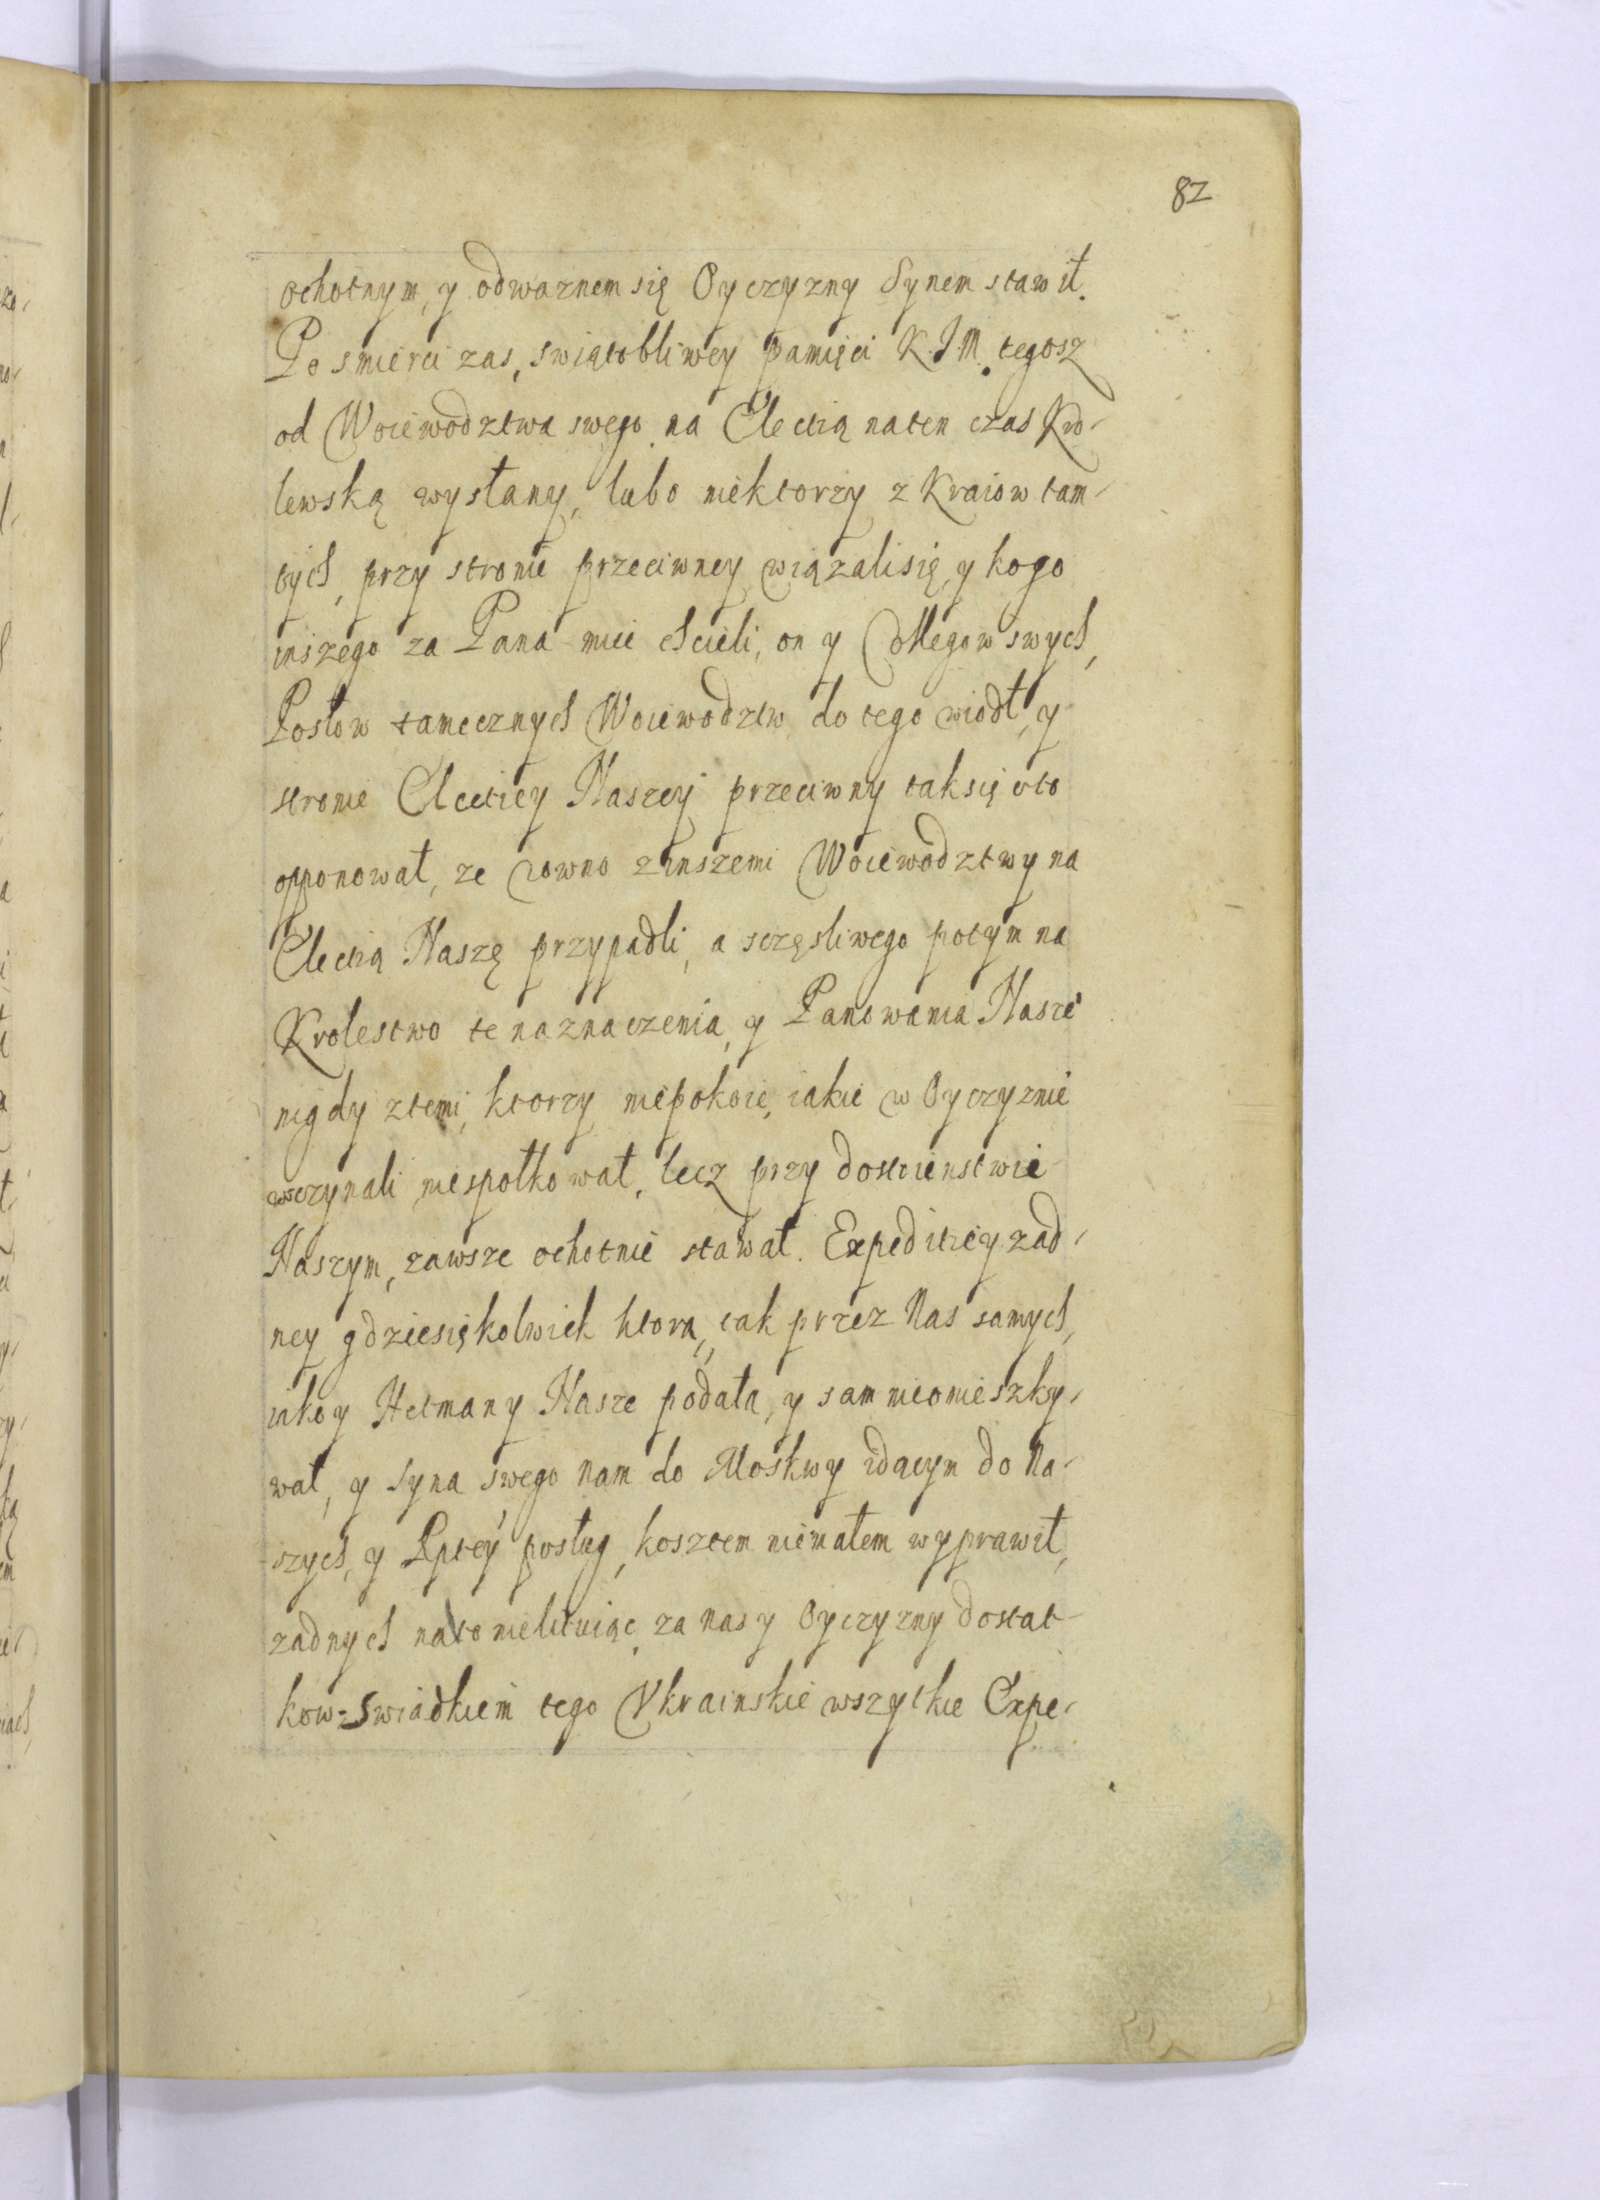 82
ochotnym, y odwaznem się Oyczyzny Synem stawił.
Po smierci zas, swiątobliwey pamięci K.J.M. tegosz
od Woiewodztwa swego na Electią naten czas Kro-
lewską wysłany, lubo niektorzy z Kraiow tam-
tych, przy stronie przeciwney wiązali się, y kogo
inszego za Pana mieć chcieli, on y Collegow swych,
Posłow tamecznych Woiewodztw do tego wiodł, y
stronie Electiey Naszey przeciwny tak się oto
opponował, ze rowno zinszemi Woiewodztwy na
Electią Naszę przypadli, a sczęsliwego potym na
Krolestwo te naznaczenia, y Panowania Nasze
nigdy ztemi, ktorzy niepokoie, iakie w Oyczyznie
wsczynali niespołkował, lecz przy dostoienstwie
Naszym, zawsze ochotnie stawał. Expeditiey zad-
ney gdziesiękolwiek ktora, tak przez Nas samych,
iako y Hetmany Nasze podała, y sam nieomieszky-
wał, y Syna swego nam do Moskwy idącym do Na-
szych, y Rptey posług, kosztem niemałem wyprawił,
zadnych nato nielituiąc za nas y Oyczyzny dostat-
kow. Swiadkiem tego Vkrainskie wszytkie Expe-